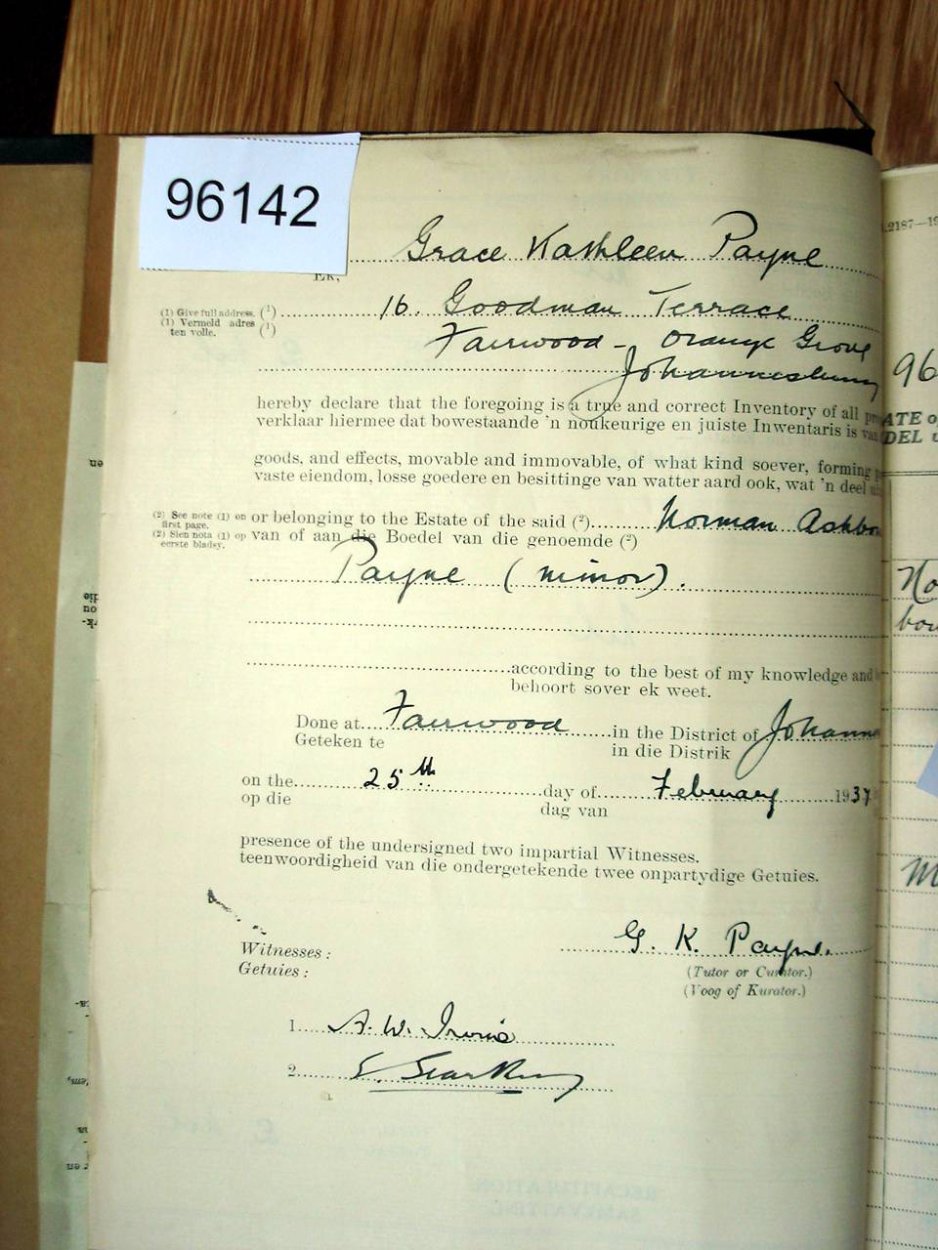 96142
Ek,
Grace Kathleen Payne
(1) Give full address. (1)
(1) Vermeld adres (1)
ten volle.
16. Goodman Terrace
Fairwood - Orange Grove
Johannesburg
hereby declare that the foregoing is a true and correct Inventory of all
verklaar hiermee dat bowestaande 'n noukeurige en juiste Inwentaris is van
goods, and effects, movable and immovable, of what kind soever, forming
vaste eiendom, losse goedere en besittinge van watter aard ook, wat 'n deel
(2) See note (1) on first page.
(2) Sien nota (1) op eerste bladsy.
or belonging to the Estate of the said (2) Norman Ashbo
van of aan die Boedel van die genoemde (2)
Payne (minor).
according to the best of my knowledge and
behoort sover ek weet.
Done at Fairwood in the District of Johann
Geteken te in die Distrik
on the 25th day of February 1937
op die dag van
presence of the undersigned two impartial Witnesses.
teenwoordigheid van die ondergetekende twee onpartydige Getuies.
G. K. Payne.
Witnesses:
Getuies:
(Tutor or Curator.)
(Voog of Kurator.)
1. A. W. Irvine
2. S.
2187-19
96
ATE o
DEL
No
bou
M